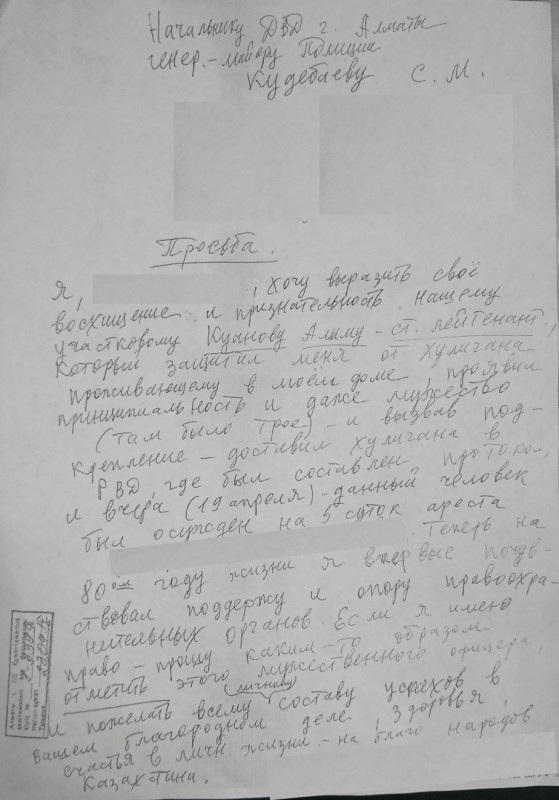 Начальнику ДВД г. Алматы
генер.-майору Полиции
Кудебаеву С. М.
Просьба.
Я, , хочу выразить своё
восхищение и признательность нашему
участковому Куанову Алыму - ст. лейтенант,
который защитил меня от хулигана
проживающему в моём доме, проявил
принципиальность и даже мужество
(там было трое) - и вызвав под-
крепление - доставил хулигана в
РВД, где был составлен протокол,
и вчера (19 апреля) - данный человек
был осужден на 5 суток ареста
. Теперь на
80ом году жизни я впервые почув-
ствовал поддержу и опору правоохра-
нительных органов. Если я имею
право - прошу каким-то образом
отметить этого мужественного офицера,
и пожелать всему (личному) составу успехов в
вашем благородном деле, здоровья,
счастья в личн. жизни - на благо народов
Казахтина.